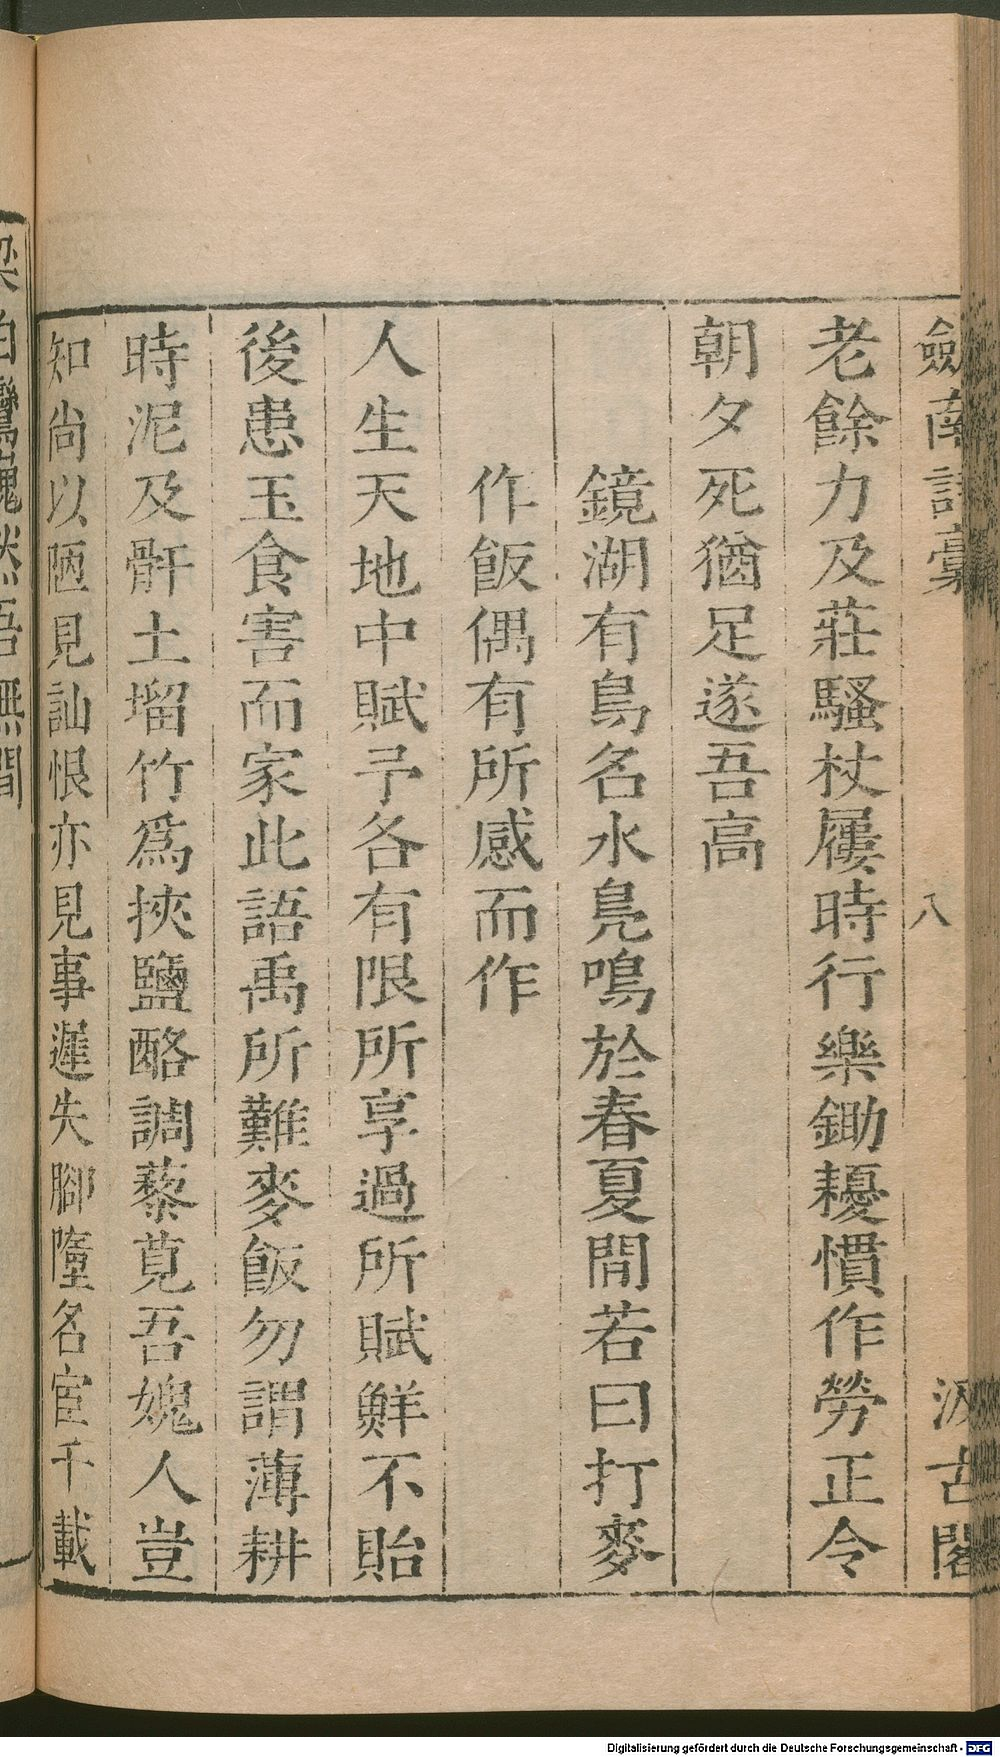 劒南詩稾
八
汲古閣
老餘力及莊騷杖屨時行樂鋤耰慣作勞正令
朝夕死猶足遂吾高
鏡湖有鳥名水鳧鳴於春夏間若曰打麥
作飯偶有所感而作
人生天地中賦予各有限所享過所賦鮮不貽
後患玉食害而家此語禹所難麥飯勿謂薄耕
時泥及骭土塯竹爲挾鹽酪調藜莧吾媿人豈
知尚以陋見訕恨亦見事遲失腳墮名宦千載
梁伯鸞嵬然吾無間
Digitalisierung gefördert durch die Deutsche Forschungsgemeinschaft - DFG